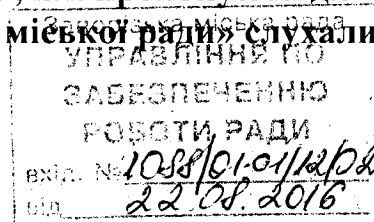 міської ради» слухали
міська рада
УПРАВЛІННЯ ПО
ЗАБЕЗПЕЧЕННЮ
РОБОТИ РАДИ
вхід. № 1088/01-01/12/02
від 22.08.2016